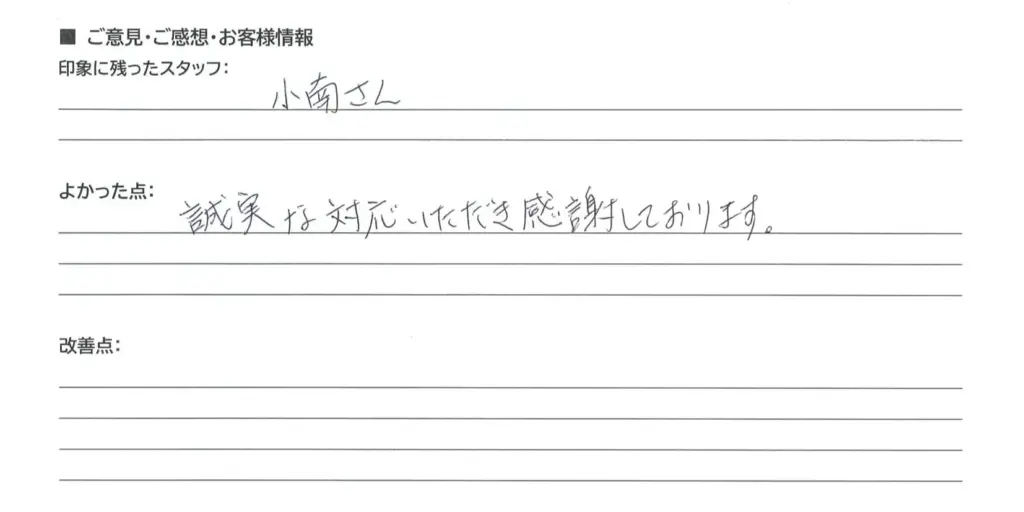 ■ ご意見・ご感想・お客様情報
印象に残ったスタッフ：
小南さん
よかった点：
誠実な対応いただき感謝しております。
改善点：